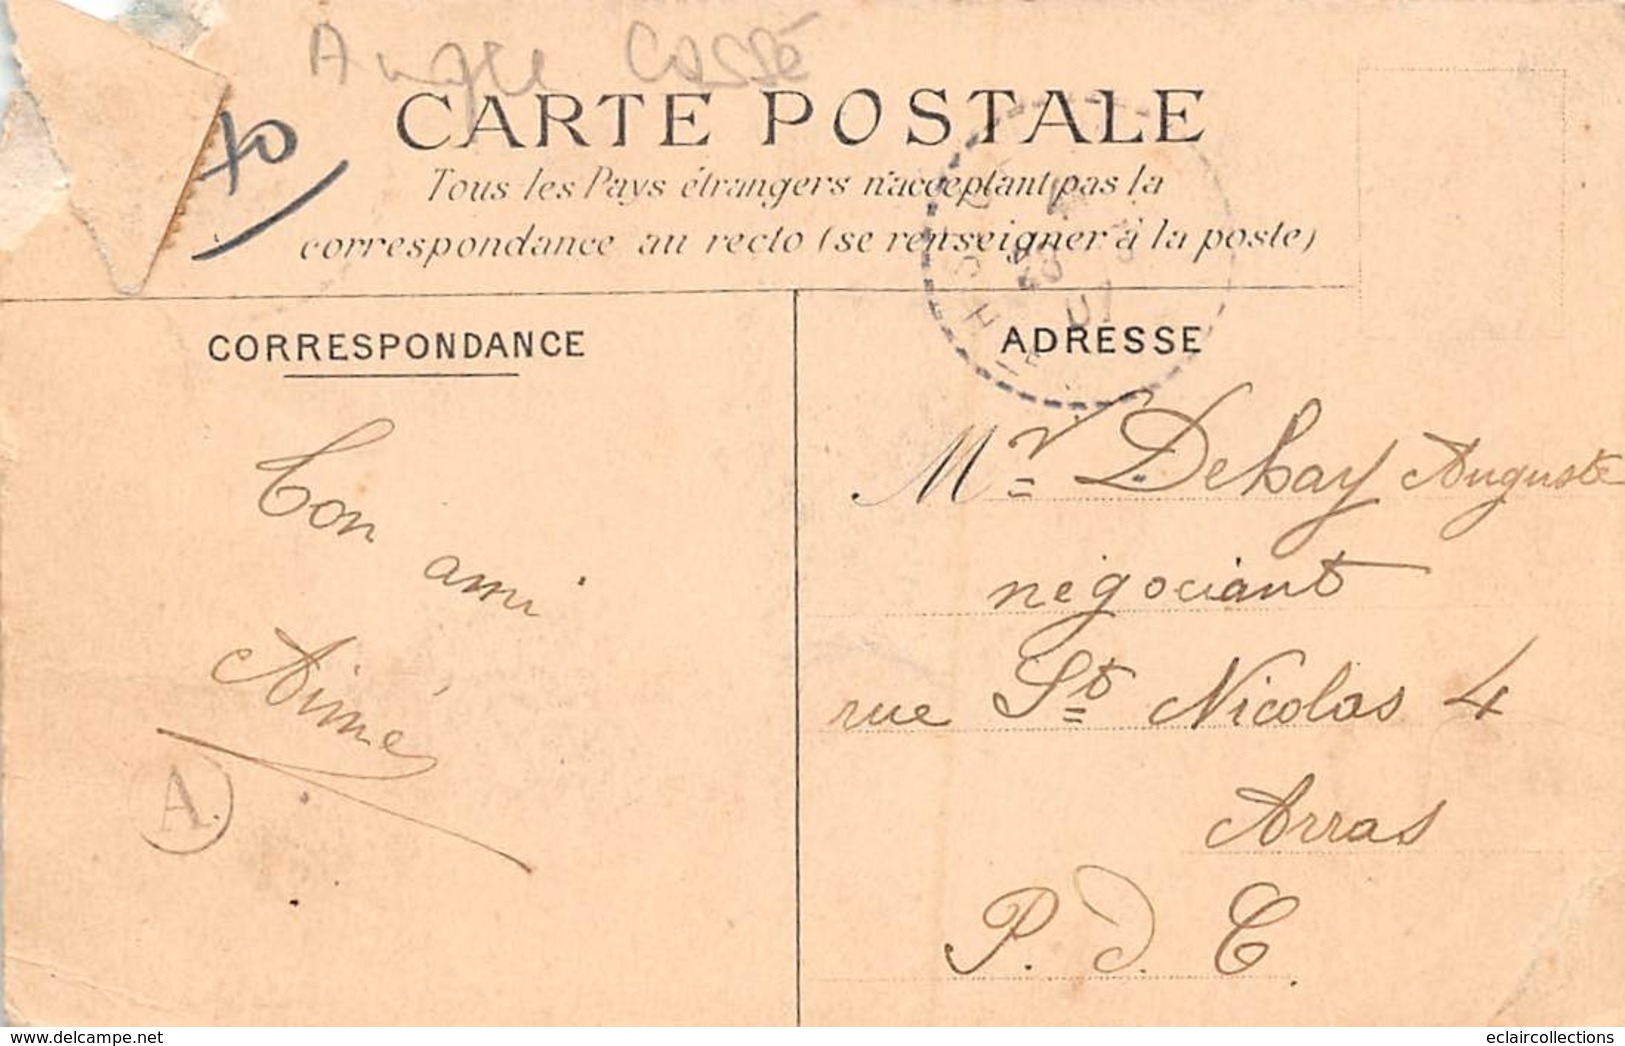 Angle Cassé
40
CARTE POSTALE
Tous les Pays étrangers n'acceptant pas la
correspondance au recto (se renseigner à la poste)
CORRESPONDANCE
Ton ami
Aimé
A.
ADRESSE
07
Mr. Dehay Auguste
négociant
rue St Nicolas 4
Arras
P. d. C.
delcampe.net
eclaircollections